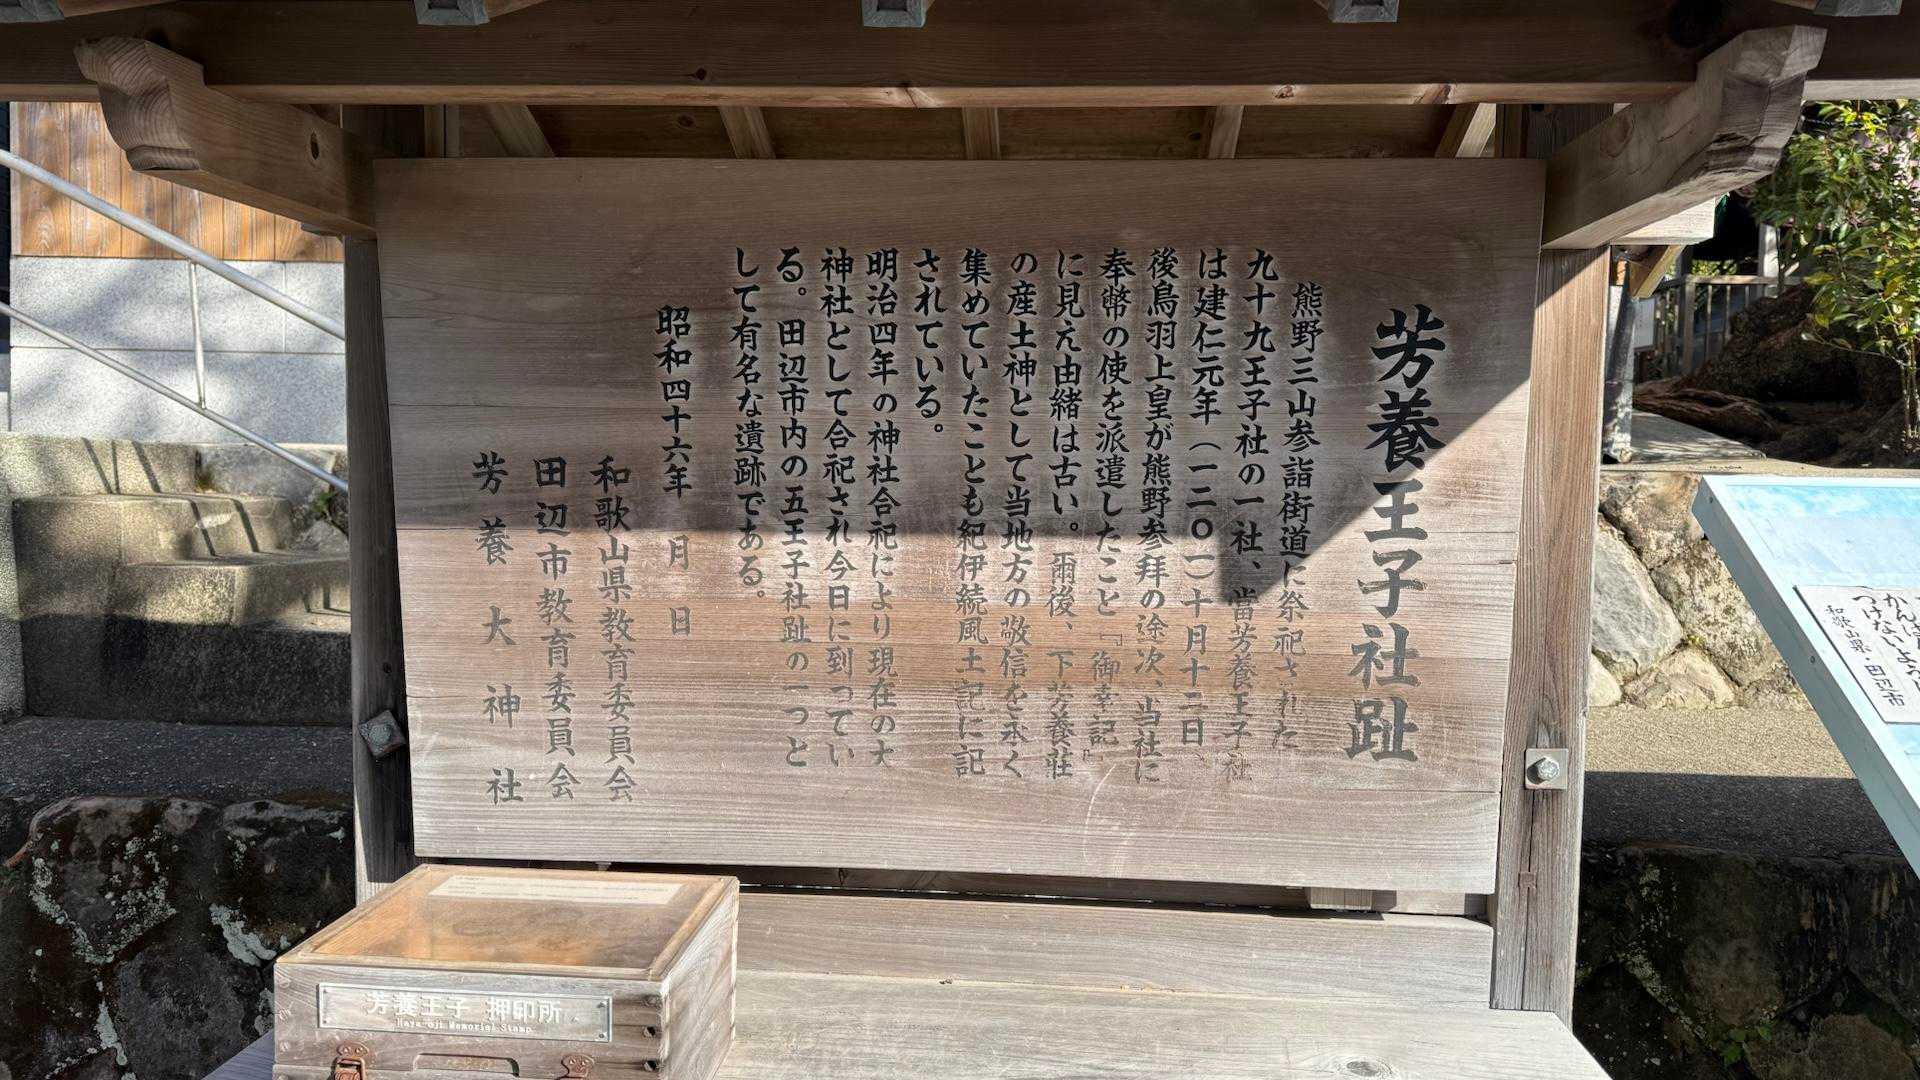 芳養王子社趾
熊野三山参詣街道に祭祀された
九十九王子社の一社、當芳養王子社
は建仁元年（一二〇一）十月十二日、
後鳥羽上皇が熊野参拝の途次、当社に
奉幣の使を派遣したこと『御幸記』
に見え由緒は古い。爾後、下芳養莊
の産土神として当地方の敬信を承く
集めていたことも紀伊続風土記に記
されている。
明治四年の神社合祀により現在の大
神社として合祀され今日に到つてい
る。田辺市内の五王子社趾の一つと
して有名な遺跡である。
昭和四十六年　月　日
和歌山県教育委員会
田辺市教育委員会
芳養大神社
芳養王子 押印所
Haya-oji Memorial Stamp
つけないよう
和歌山県・田辺市